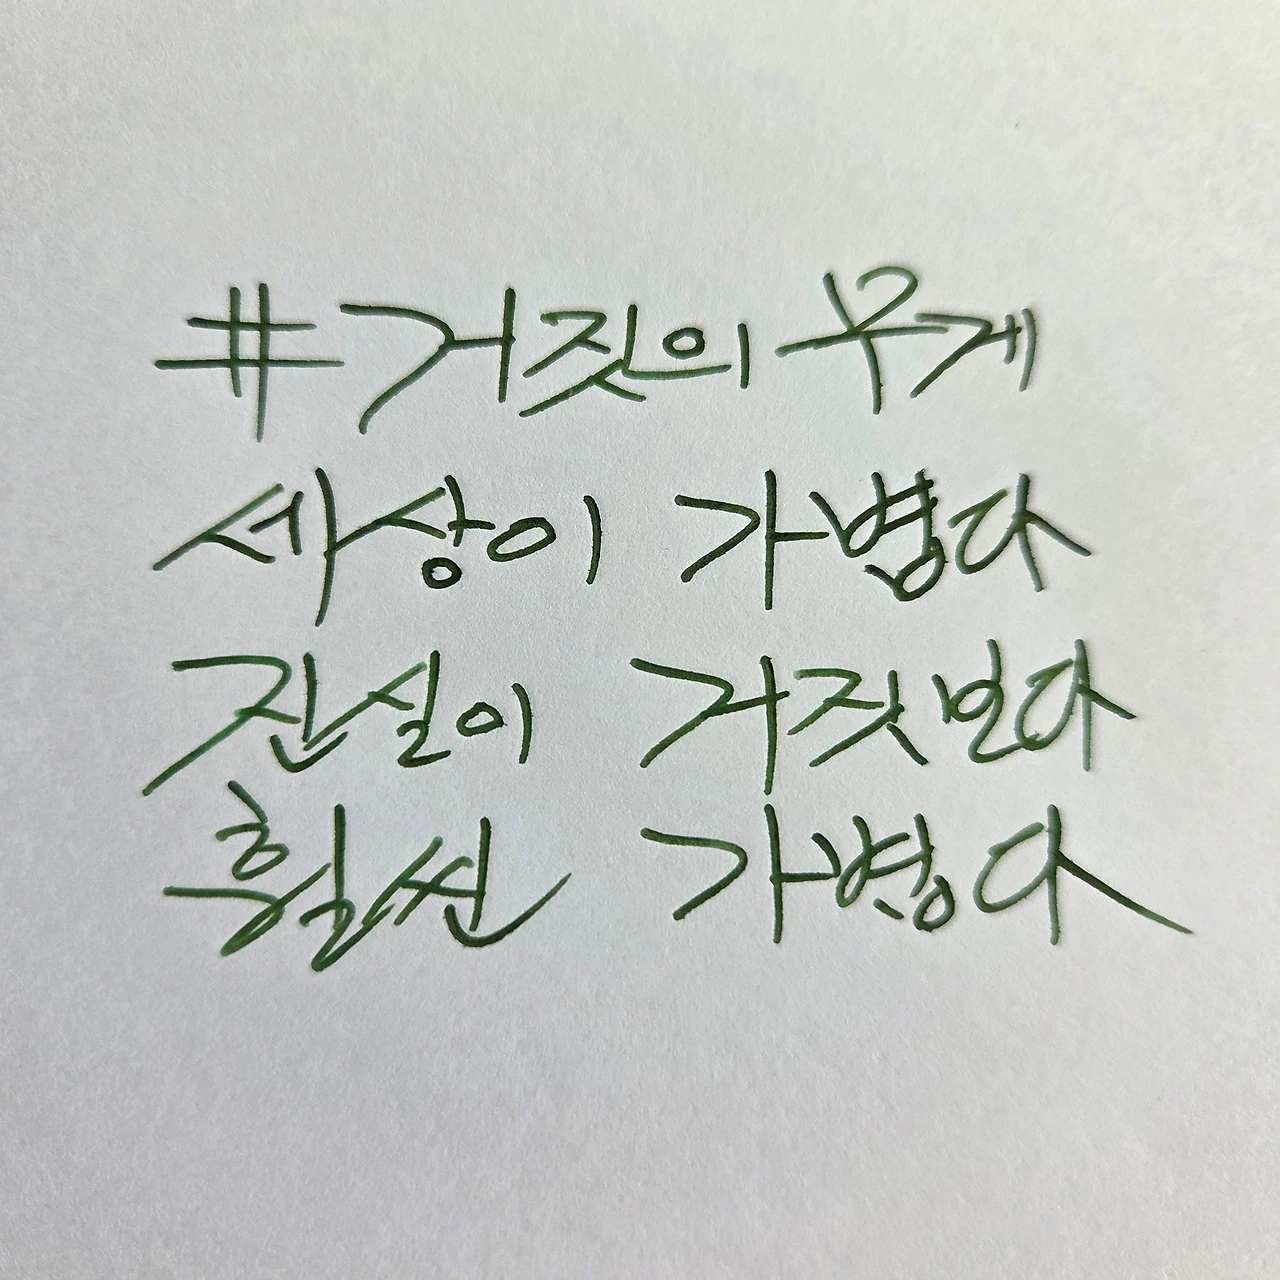 #거짓의 무게
세상이 가볍다
진실이 거짓보다
훨씬 가볍다